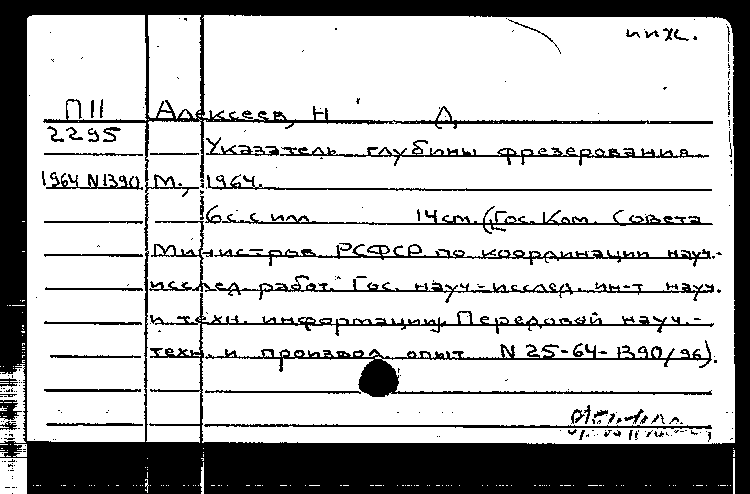 инж.
П11 Алексеев, Н Д,
2295
Указатель глубины фрезерования
1964 N1390 М., 1964.
6с.с илл. 14см. (Гос. Ком. Совета
Министров РСФСР по координации науч.-
исслед. работ. Гос. науч.-исслед. ин-т науч.
и техн. информации). Передовой науч.-
техн. и производ. опыт. N 25-64-1390/96).